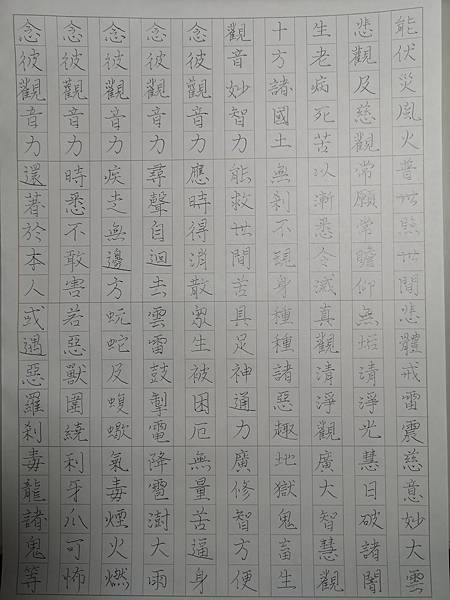 念彼觀音力還著於本人或遇惡羅剎毒龍諸鬼等
念彼觀音力時悉不敢害若惡獸圍繞利牙爪可怖
念彼觀音力疾走無邊方蚖蛇及蝮蠍氣毒煙火燃
念彼觀音力尋聲自迴去雲雷鼓掣電降雹澍大雨
念彼觀音力應時得消散眾生被困厄無量苦逼身
觀音妙智力能救世間苦具足神通力廣修智方便
十方諸國土無剎不現身種種諸惡趣地獄鬼畜生
生老病死苦以漸悉令滅真觀清淨觀廣大智慧觀
悲觀及慈觀常願常瞻仰無垢清淨光慧日破諸闇
能伏災風火普世照世間悲體戒雷震慈意妙大雲